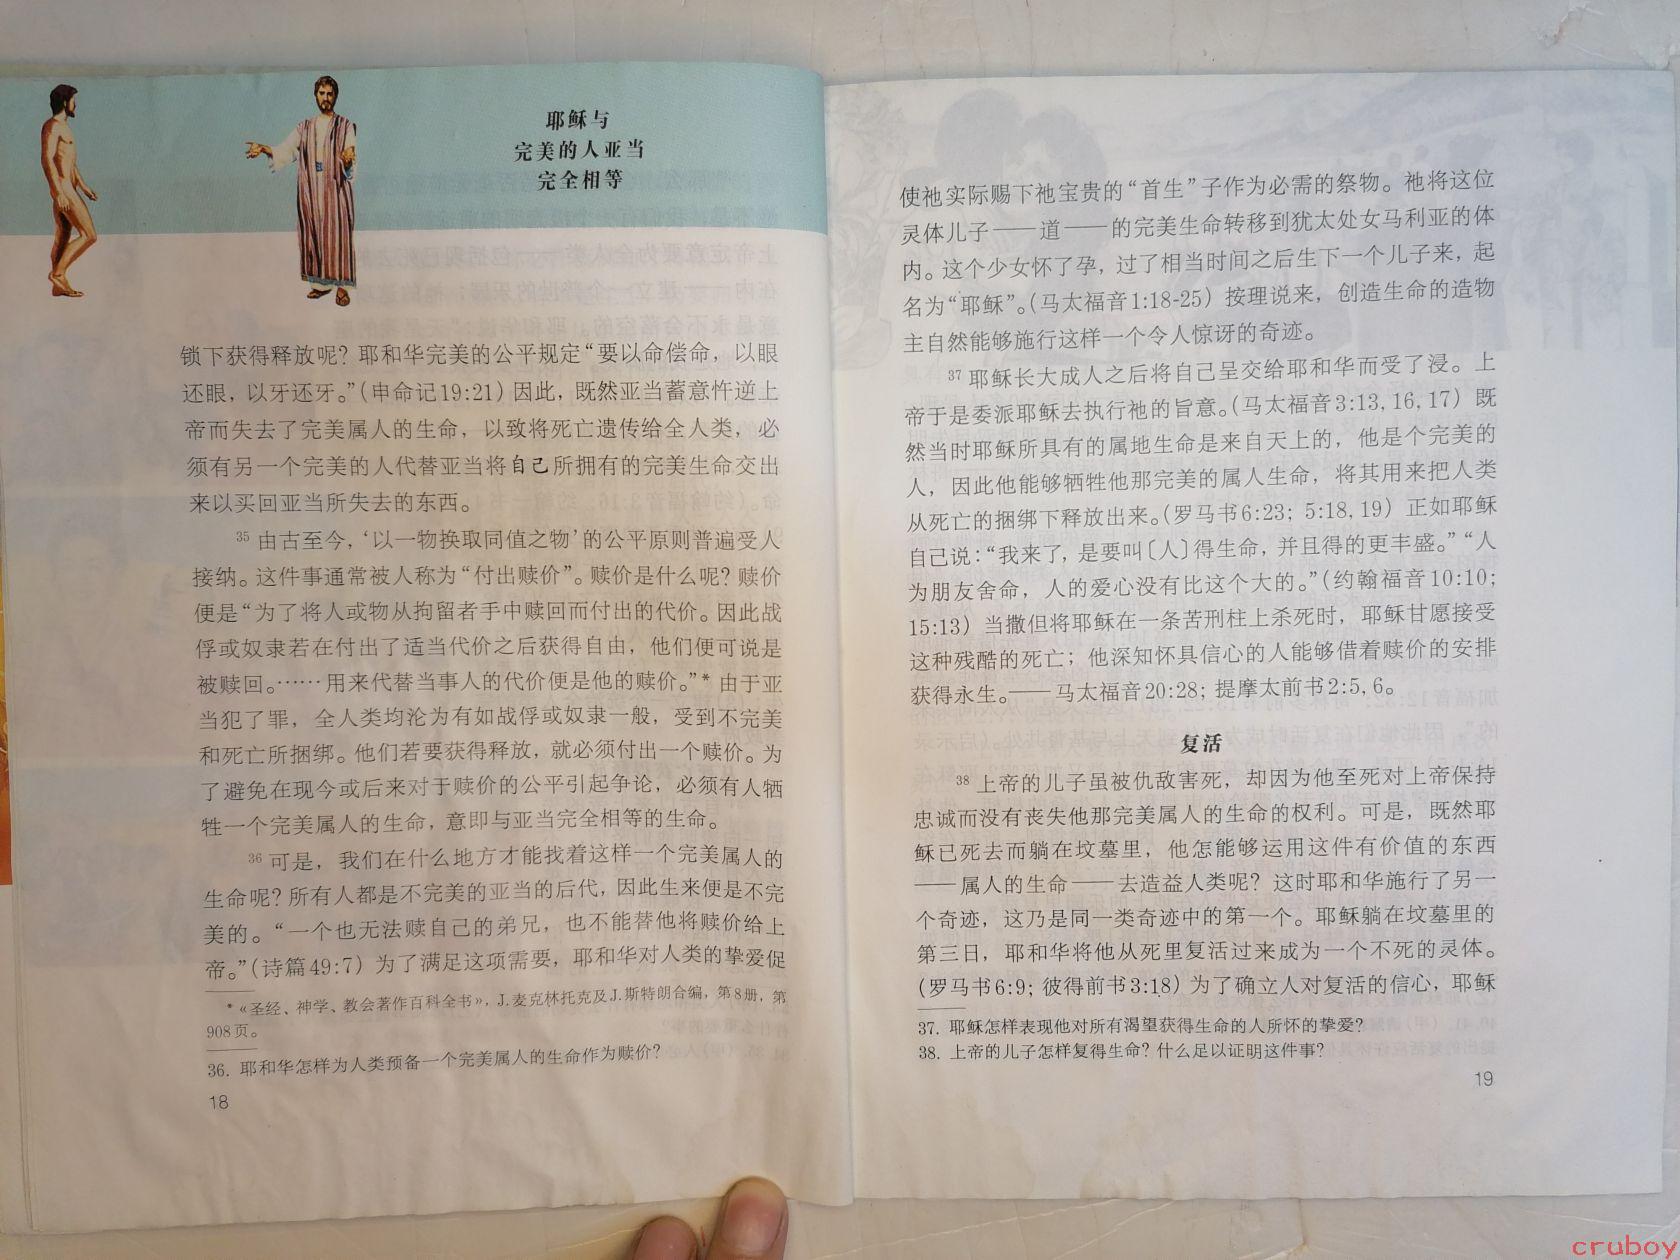 耶稣与
完美的人亚当
完全相等
锁下获得释放呢？耶和华完美的公平规定“要以命偿命，以眼
还眼，以牙还牙。”（申命记19:21）因此，既然亚当蓄意忤逆上
帝而失去了完美属人的生命，以致将死亡遗传给全人类，必
须有另一个完美的人代替亚当将自己所拥有的完美生命交出
来以买回亚当所失去的东西。
35 由古至今，‘以一物换取同值之物’的公平原则普遍受人
接纳。这件事通常被人称为“付出赎价”。赎价是什么呢？赎价
便是“为了将人或物从拘留者手中赎回而付出的代价。因此战
俘或奴隶若在付出了适当代价之后获得自由，他们便可说是
被赎回。……用来代替当事人的代价便是他的赎价。”* 由于亚
当犯了罪，全人类均沦为有如战俘或奴隶一般，受到不完美
和死亡所捆绑。他们若要获得释放，就必须付出一个赎价。为
了避免在现今或后来对于赎价的公平引起争论，必须有人牺
牲一个完美属人的生命，意即与亚当完全相等的生命。
36 可是，我们在什么地方才能找着这样一个完美属人的
生命呢？所有人都是不完美的亚当的后代，因此生来便是不完
美的。“一个也无法赎自己的弟兄，也不能替他将赎价给上
帝。”（诗篇49:7）为了满足这项需要，耶和华对人类的挚爱促
*《圣经、神学、教会著作百科全书》，J.麦克林托克及J.斯特朗合编，第8册，第
908页。
36. 耶和华怎样为人类预备一个完美属人的生命作为赎价？
18
使祂实际赐下祂宝贵的“首生”子作为必需的祭物。祂将这位
灵体儿子——道——的完美生命转移到犹太处女马利亚的体
内。这个少女怀了孕，过了相当时间之后生下一个儿子来，起
名为“耶稣”。（马太福音1:18-25）按理说来，创造生命的造物
主自然能够施行这样一个令人惊讶的奇迹。
37 耶稣长大成人之后将自己呈交给耶和华而受了浸。上
帝于是委派耶稣去执行祂的旨意。（马太福音3:13, 16, 17）既
然当时耶稣所具有的属地生命是来自天上的，他是个完美的
人，因此他能够牺牲他那完美的属人生命，将其用来把人类
从死亡的捆绑下释放出来。（罗马书6:23; 5:18, 19）正如耶稣
自己说：“我来了，是要叫〔人〕得生命，并且得的更丰盛。”“人
为朋友舍命，人的爱心没有比这个大的。”（约翰福音10:10;
15:13）当撒但将耶稣在一条苦刑柱上杀死时，耶稣甘愿接受
这种残酷的死亡；他深知怀具信心的人能够借着赎价的安排
获得永生。——马太福音20:28; 提摩太前书2:5, 6。
复活
38 上帝的儿子虽被仇敌害死，却因为他至死对上帝保持
忠诚而没有丧失他那完美属人的生命的权利。可是，既然耶
稣已死去而躺在坟墓里，他怎能够运用这件有价值的东西
——属人的生命——去造益人类呢？这时耶和华施行了另一
个奇迹，这乃是同一类奇迹中的第一个。耶稣躺在坟墓里的
第三日，耶和华将他从死里复活过来成为一个不死的灵体。
（罗马书6:9; 彼得前书3:18）为了确立人对复活的信心，耶稣
37. 耶稣怎样表现他对所有渴望获得生命的人所怀的挚爱？
38. 上帝的儿子怎样复得生命？什么足以证明这件事？
19
cruboy